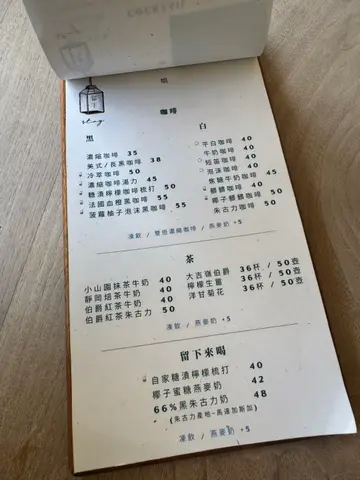 stay
咖啡
黑
濃縮咖啡 35
美式/長黑咖啡 38
冷萃咖啡 50
濃縮咖啡湯力 45
糖漬檸檬咖啡梳打 50
法國血橙黑咖啡 55
菠蘿柚子泡沫黑咖啡 55
白
平白咖啡 40
牛奶咖啡 40
短笛咖啡 40
泡沫咖啡 40
蜜糖牛奶咖啡 45
髒髒咖啡 40
椰子髒髒咖啡 50
朱古力咖啡 50
凍飲 / 雙倍濃縮咖啡 / 燕麥奶 +5
茶
小山園抹茶牛奶 40
靜岡焙茶牛奶 40
伯爵紅茶牛奶 40
伯爵紅茶朱古力 50
大吉嶺伯爵 36杯 / 50壺
檸檬生薑 36杯 / 50壺
洋甘菊花 36杯 / 50壺
凍飲 / 燕麥奶 +5
留下來喝
自家糖漬檸檬梳打 40
椰子蜜糖燕麥奶 42
66%黑朱古力奶 48
(朱古力產地-馬達加斯加)
凍飲 / 燕麥奶 +5